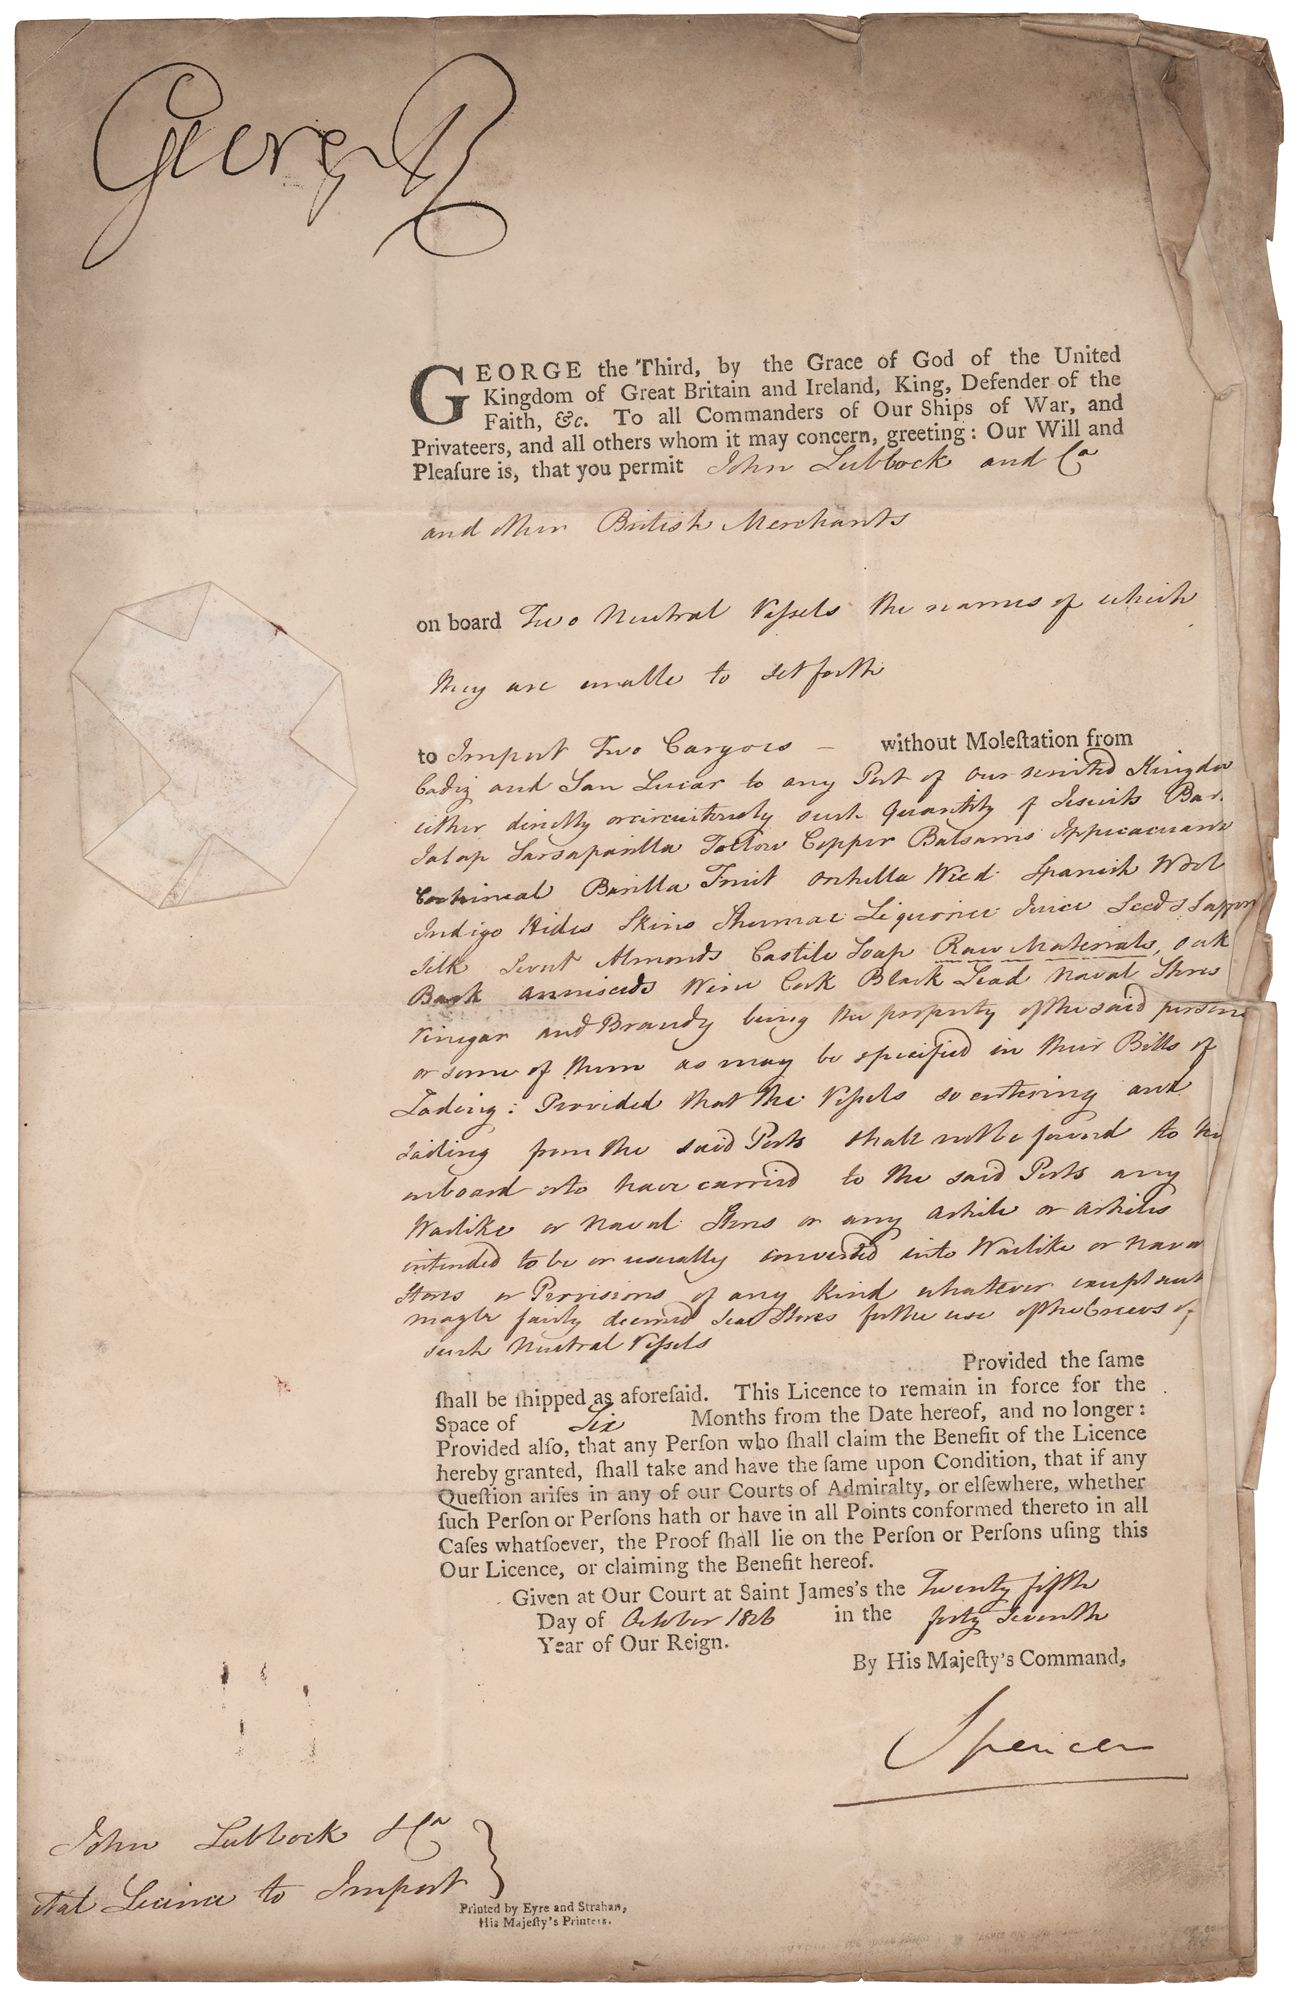 George R
GEORGE the Third, by the Grace of God of the United
Kingdom of Great Britain and Ireland, King, Defender of the
Faith, &c. To all Commanders of Our Ships of War, and
Privateers, and all others whom it may concern, greeting: Our Will and
Pleaſure is, that you permit John Lubbock and Co
and other British Merchants
on board Two Neutral Veſsels the names of which
they are unable to set forth
to Import Two Cargoes – without Moleſtation from
Cadiz and San Lucar to any Port of our united Kingdo
either directly or circuitously such Quantity of Jesuits Bar
Jalap Sarsaparilla Tallow Copper Balsams
Cochineal Barilla Fruit Orchella Weed Spanish Wool
Indigo Hides Skins Shumac Liquorice Juice Seeds Saffron
Silk Sweet Almonds Castile Soap Raw Materials, oak
Bark Anniseeds Wine Cork Black Lead Naval Stores
Vinegar and Brandy being the property of the said persons
or some of them as may be specified in their Bills of
Lading: Provided that the Veſsels so entering and
sailing from the said Ports shall not be found to ha
onboard or to have carried to the said Ports any
Warlike or Naval Stores or any article or articles
intended to be or usually converted into Warlike or Nava
Stores or Provisions of any Kind whatever except such
may be fairly deemed Sea Stores for the use of the Crews of
such Neutral Veſsels
Provided the ſame
ſhall be ſhipped as aforeſaid. This Licence to remain in force for the
Space of Six Months from the Date hereof, and no longer:
Provided alſo, that any Perſon who ſhall claim the Benefit of the Licence
hereby granted, ſhall take and have the ſame upon Condition, that if any
Queſtion ariſes in any of our Courts of Admiralty, or elſewhere, whether
ſuch Perſon or Perſons hath or have in all Points conformed thereto in all
Caſes whatſoever, the Proof ſhall lie on the Perſon or Perſons uſing this
Our Licence, or claiming the Benefit hereof.
Given at Our Court at Saint James's the Twenty fifth
Day of October 1806 in the forty seventh
Year of Our Reign.
By His Majeſty's Command,
Spencer
John Lubbock & Co
Licence to Import
Printed by Eyre and Strahan,
His Majeſty's Printers.